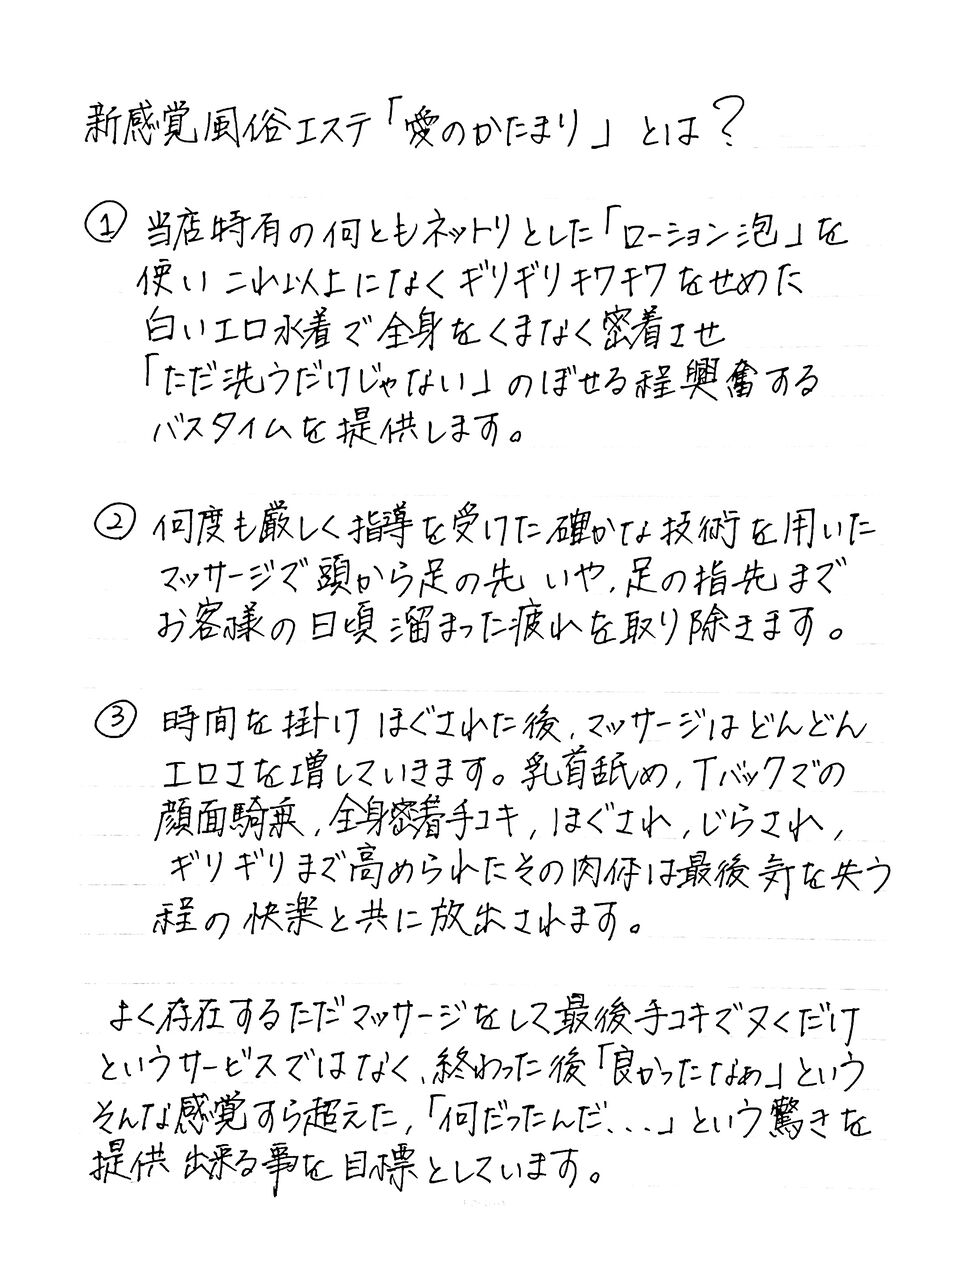 新感覚風俗エステ「愛のかたまり」とは?
① 当店特有の何ともネットリとした「ローション泡」を
使いこれ以上になくギリギリキワキワをせめた
白いエロ水着で全身をくまなく密着させ
「ただ洗うだけじゃない」のぼせる程興奮する
バスタイムを提供します。
② 何度も厳しく指導を受けた確かな技術を用いた
マッサージで頭から足の先いや、足の指先まで
お客様の日頃溜まった疲れを取り除きます。
③ 時間を掛けほぐされた後、マッサージはどんどん
エロさを増していきます。乳首舐め、Tバックでの
顔面騎乗、全身密着手コキ、ほぐされ、じらされ、
ギリギリまで高められたその肉体は最後気を失う
程の快楽と共に放出されます。
よく存在するただマッサージをして最後手コキでヌくだけ
というサービスではなく、終わった後「良かったなぁ」という
そんな感覚すら超えた、「何だったんだ...」という驚きを
提供出来る事を目標としています。